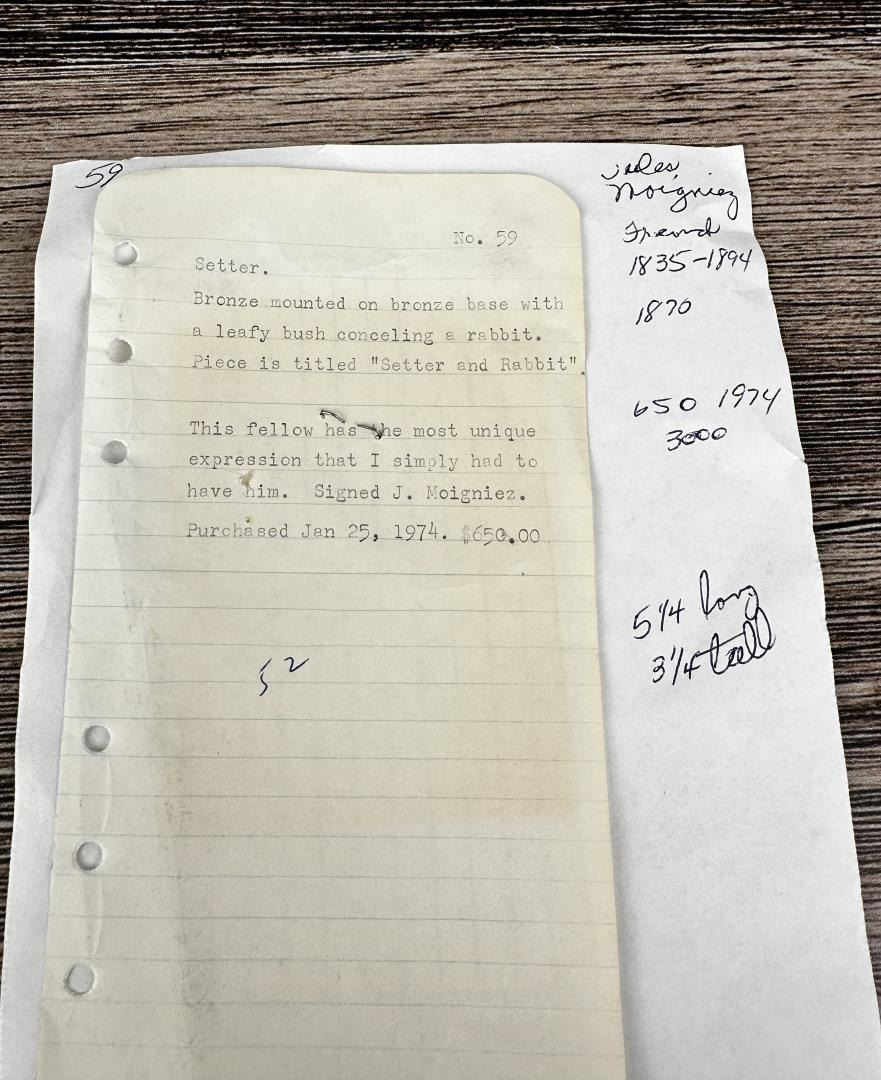 59
No. 59
Setter.
Bronze mounted on bronze base with
a leafy bush conceling a rabbit.
Piece is titled "Setter and Rabbit".
This fellow has the most unique
expression that I simply had to
have him. Signed J. Moigniez.
Purchased Jan 25, 1974. $650.00
52
Jules
Moigniez
1835-1894
1870
650 1974
3000
5 1/4 long
3 1/4 tall